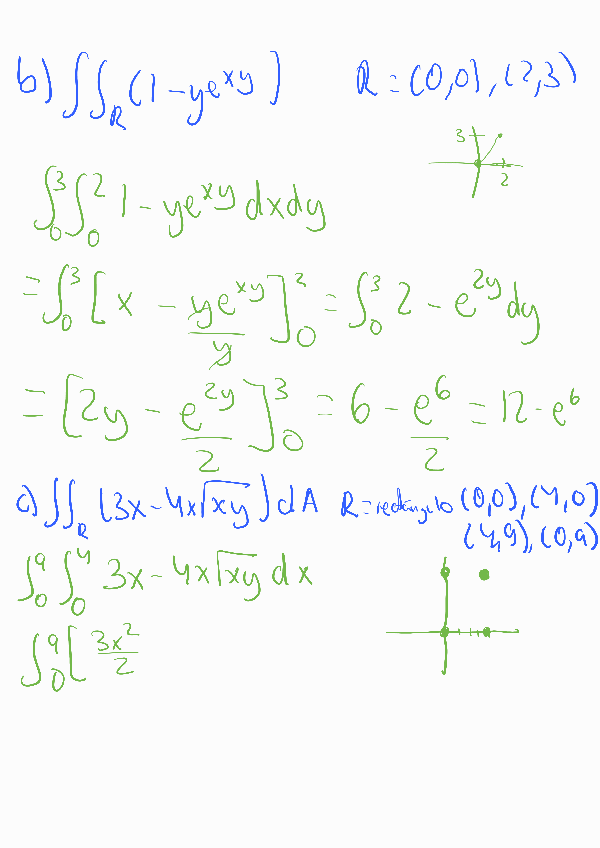 b) ∫∫_R (1 - ye^{xy}) R = (0,0), (2,3)
3
2
∫_0^3 ∫_0^2 1 - ye^{xy} dxdy
= ∫_0^3 [x - ye^{xy}/y]_0^2 = ∫_0^3 2 - e^{2y} dy
= [2y - e^{2y}/2]_0^3 = 6 - e^6/2 = 12 - e^6
c) ∫∫_R (3x - 4x√xy) dA R = rectangulo (0,0), (4,0)
(4,9), (0,9)
∫_0^9 ∫_0^4 3x - 4x√xy dx
∫_0^9 [3x^2/2